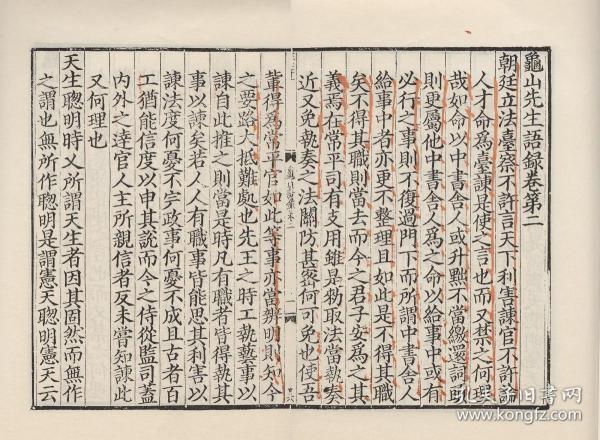 龜山先生語錄卷第二
朝廷立法臺察不許言天下利害諫官不許論
人才命爲臺諫是使之言也而又禁之何理
哉如命以中書舍人或升黜不當繳還詞頭
則更屬他中書舍人爲之命以給事中或有
必行之事則不復過門下而所謂中書舍人
給事中者亦更不整理且如此是不得其職
矣不得其職則當去而今之君子安爲之其
義焉在常平司有支用雖是物取法當執奏
近又免執奏之法關防甚密何可免也使吾
輩得爲常平官如此等事亦當辨明則知今
之要路大抵難處也先王之時工執藝事以
諫自此推之則當是時凡有職者皆得執其
事以諫矣若人人有職事皆能思其利害以
諫法度何憂不完政事何憂不成且古者百
工猶能信度以申其說而今之侍從監司蓋
內外之達官人主所親信者反未嘗知諫此
又何理也
天生聰明時乂所謂天生者因其固然而無作
之謂也無所作聰明是謂憲天聰明憲天云
孔夫子旧书网
www.kongfz.com